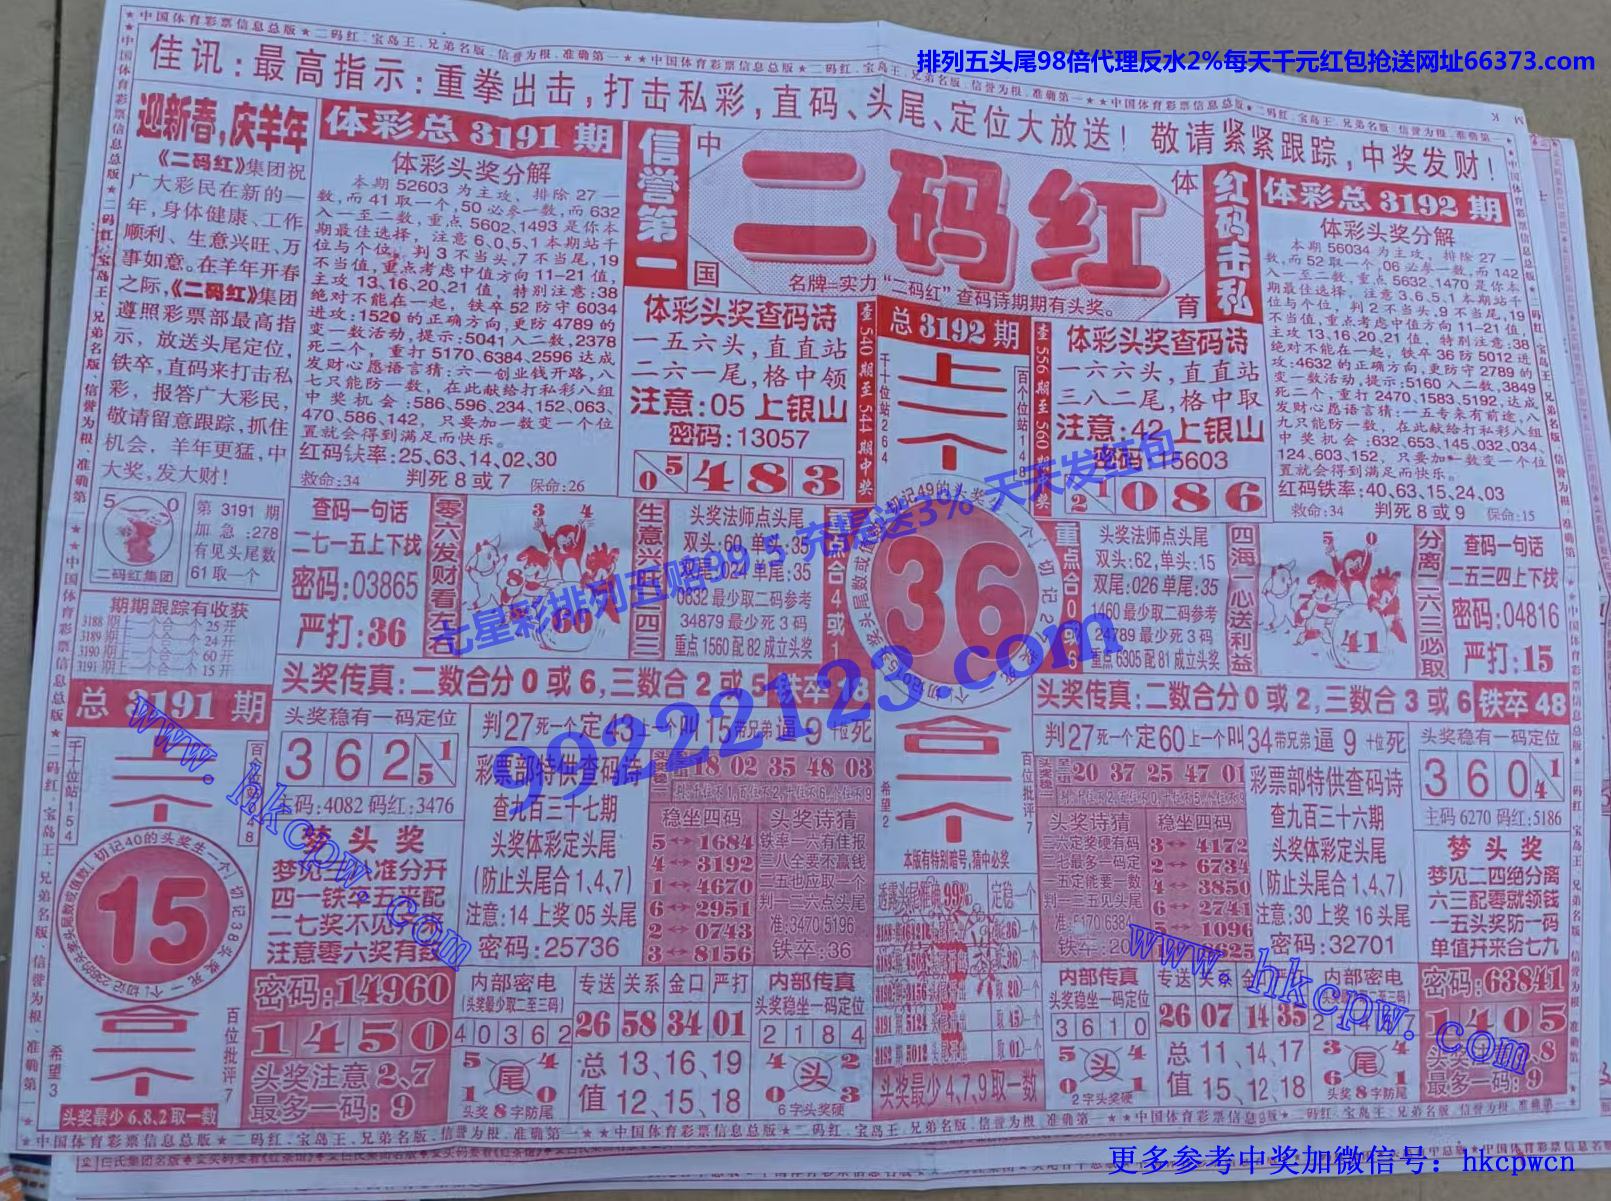 排列五头尾98倍代理反水2%每天千元红包抢送网址66373.com
佳讯:最高指示:重拳出击,打击私彩,直码、头尾、定位大放送!敬请紧紧跟踪,中奖发财!
迎新春,庆羊年
《二码红》集团祝
广大彩民在新的一
年,身体健康、工作
顺利、生意兴旺、万
事如意。在羊年开春
之际,《二码红》集团
遵照彩票部最高指
示,放送头尾定位,
铁卒,直码来打击私
彩,报答广大彩民,
敬请留意跟踪,抓住
机会,羊年更猛,中
大奖,发大财!
体彩总3191期
体彩头奖分解
本期52603为主攻,排除27一
数,而41取一个,50必参一数,而632
入一至二数,重点5602,1493是你本
期最佳选择,注意6、0、5、1本期站千
位与个位,判3不当头,7不当尾,19
不当值,重点考虑中值方向11-21值,
主攻13、16、20、21值,特别注意:38
绝对不能在一起,铁卒52防守6034
进攻:1520的正确方向,更防4789的
变一数活动,提示:5041入二数,2378
死二个,重打5170,6384,2596达成
发财心愿语言猜:六一创业钱开路,八
七只能防一数,在此献给打私彩八组
中奖机会:586,596,234,152,063,
470,586,142,只要加一数变一个位
置就会得到满足而快乐。
红码铁率:25,63,14,02,30
救命:34 判死8或7 保命:26
信誉第一
中国体育
二码红
名牌=实力"二码红"查码诗期期有头奖。
红码击私
体彩头奖查码诗
一五六头,直直站
二六一尾,格中领
注意:05上银山
密码:13057
0 5 4 8 3
查540期至544期中奖
总3192期
上一个
千十位站264
36
合一个
希望2
百位批评7
本版有特别暗号,猜中必奖
体彩头奖查码诗
一六六头,直直站
三八二尾,格中取
注意:42上银山
密码:15603
2 1 0 8 6
体彩总3192期
体彩头奖分解
本期56034为主攻,排除27一
数,而52取一个,06必参一数,而142
入一至二数,重点5632,1470是你本
期最佳选择,注意3、6、5、1本期站千
位与个位,判2不当头,9不当尾,19
不当值,重点考虑中值方向11-21值,
主攻13、16、20、21值,特别注意:38
绝对不能在一起,铁卒36防5012进
攻:4632的正确方向,更防守2789的
变一数活动,提示:5160入二数,3849
死二个,重打2470,1583,5192,达成
发财心愿语言猜:一五专来有前途,八
九只能防一数,在此献给打私彩八组
中奖机会:632,653,145,032,034,
124,603,152,只要加一数变一个位
置就会得到满足而快乐。
红码铁率:40,63,15,24,03
救命:34 判死8或9 保命:15
5 0
二码红集团
第3191期
加急:278
有见头尾数
61取一个
期期跟踪有收获
3188期上一个合一个25开
3189期上一个合一个24开
3190期上一个合一个60开
3191期上一个合一个15开
查码一句话
二七一五上下找
密码:03865
严打:36
零六发财看六合
3 4
8
66
生意兴旺一四三
头奖法师点头尾
双头:60,单头:35
双尾:024单尾:35
0832最少取二码参考
34879最少死3码
重点1560配82成立头奖
重点合4或1
重点合0或6
头奖法师点头尾
双头:62,单头:15
双尾:026单尾:35
1460最少取二码参考
24789最少死3码
重点6305配81成立头奖
四海一心送利益
5 0
41
分离二六三必取
查码一句话
二五三四上下找
密码:04816
严打:15
头奖传真:二数合分0或6,三数合2或5铁卒28
头奖传真:二数合分0或2,三数合3或6铁卒48
总3191期
上一个
千十位站154
15
合一个
希望3
百位批评7
头奖最少6,8,2取一数
头奖稳有一码定位
3 6 2 1 5
主码:4082码红:3476
梦头奖
四一铁卒五来配
二七奖不见不来
注意零六奖有数
密码:14960
1450
头奖注意2、7
最多一码:9
判27死一个定43上一个叫15带兄弟逼9十位死
彩票部特供查码诗
查九百三十七期
头奖体彩定头尾
(防止头尾合1,4,7)
注意:14上奖05头尾
密码:25736
18 02 35 48 03
稳坐四码
5↔1684
4↔3192
1↔4670
6↔2951
2↔0743
3↔8156
头奖诗猜
铁率一六有佳报
三八全要不赢钱
二五也应取一个
判一二六点头尾
准:34705196
铁卒:36
内部密电
(头奖最少取二至三码)
4 0 3 6 2
5 4 尾 1 0
头奖8字防尾
专送 关系 金口 严打
26 58 34 01
总值 13、16、19
12、15、18
内部传真
头奖稳坐一码定位
2 1 8 4
4 2 头 0 3
6字头奖硬
定稳一个
头奖最少4,7,9取一数
判27死一个定60上一个叫34带兄弟逼9十位死
20 37 25 47 01
头奖诗猜
二六定奖硬有码
三七最多一码定
一五定能要一数
判一三五见头尾
稳坐四码
3↔4172
2↔6734
4↔3850
6↔2741
5↔1096
彩票部特供查码诗
查九百三十六期
头奖体彩定头尾
(防止头尾合1,4,7)
注意:30上奖16头尾
密码:32701
头奖稳有一码定位
3 6 0 1 4
主码6270码红:5186
梦头奖
梦见二四绝分离
六三配零就领钱
一五头奖防一码
单值开来合七九
密码:63841
1405
最多一码:9
内部传真
头奖稳坐一码定位
3 6 1 0
5 4 头 0 1
2字头奖硬
专送 关系
26 07 14 35
总值 11、14、17
15、12、18
内部密电
3 4 尾 6 1
头奖8字防尾
七星彩排列五赔99.5 充提送3% 天天发红包
99222123.com
www.hkcpw.com
www.hkcpw.com
更多参考中奖加微信号:hkcpwcn